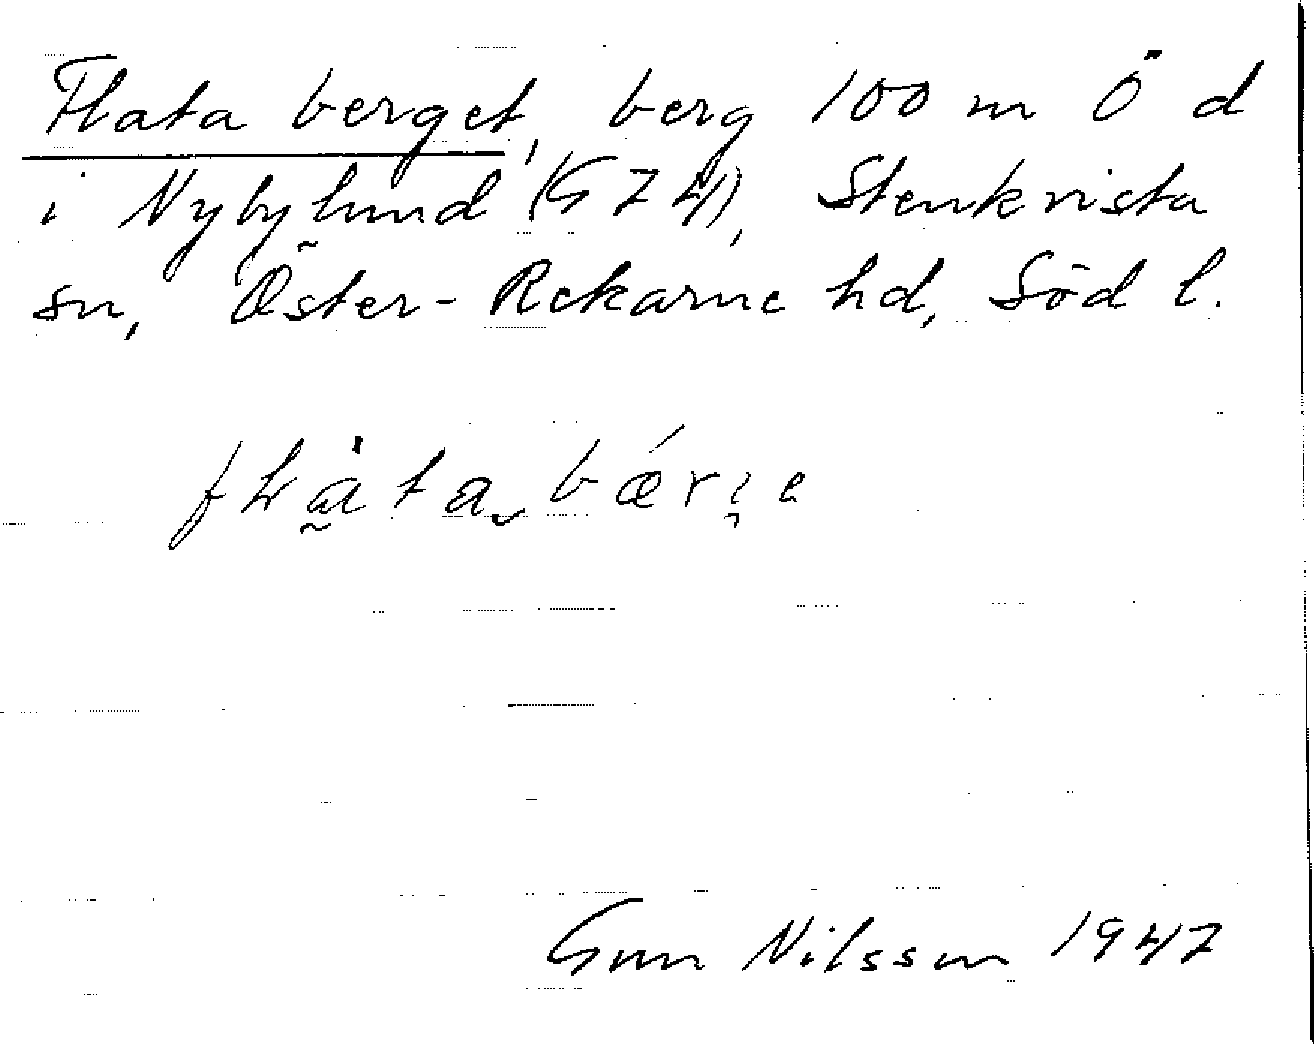 Flata berget, berg 100 m Ö d
i Nybylund (G 74), Stenkvista
sn, Öster-Rekarne hd, Söd l.
Gun Nilsson 1947